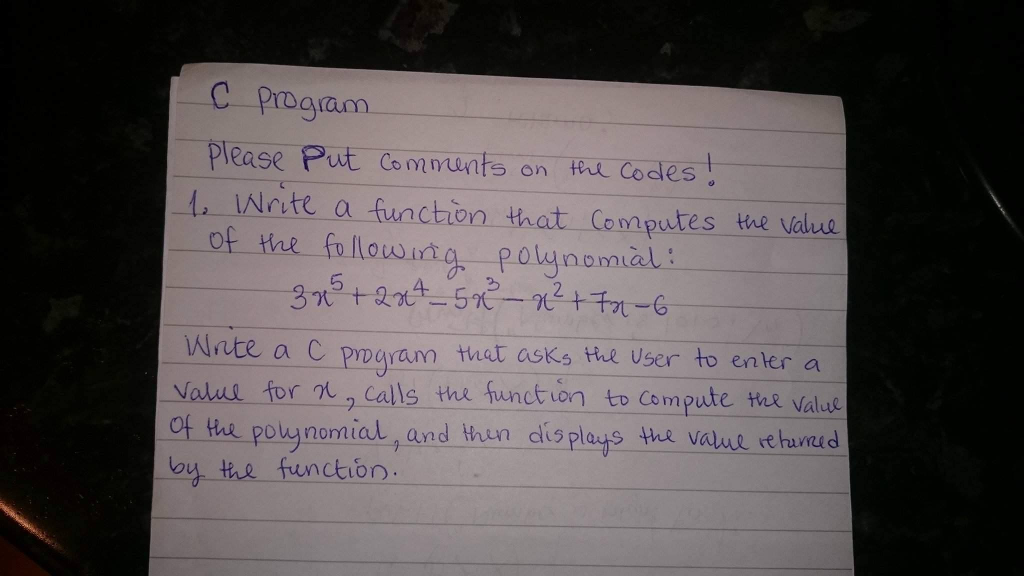 C program
please Put comments on the codes!
1. Write a function that computes the value
of the following polynomial:
3x⁵ + 2x⁴ - 5x³ - x² + 7x - 6
Write a C program that asks the user to enter a
value for x, calls the function to compute the value
of the polynomial, and then displays the value returned
by the function.